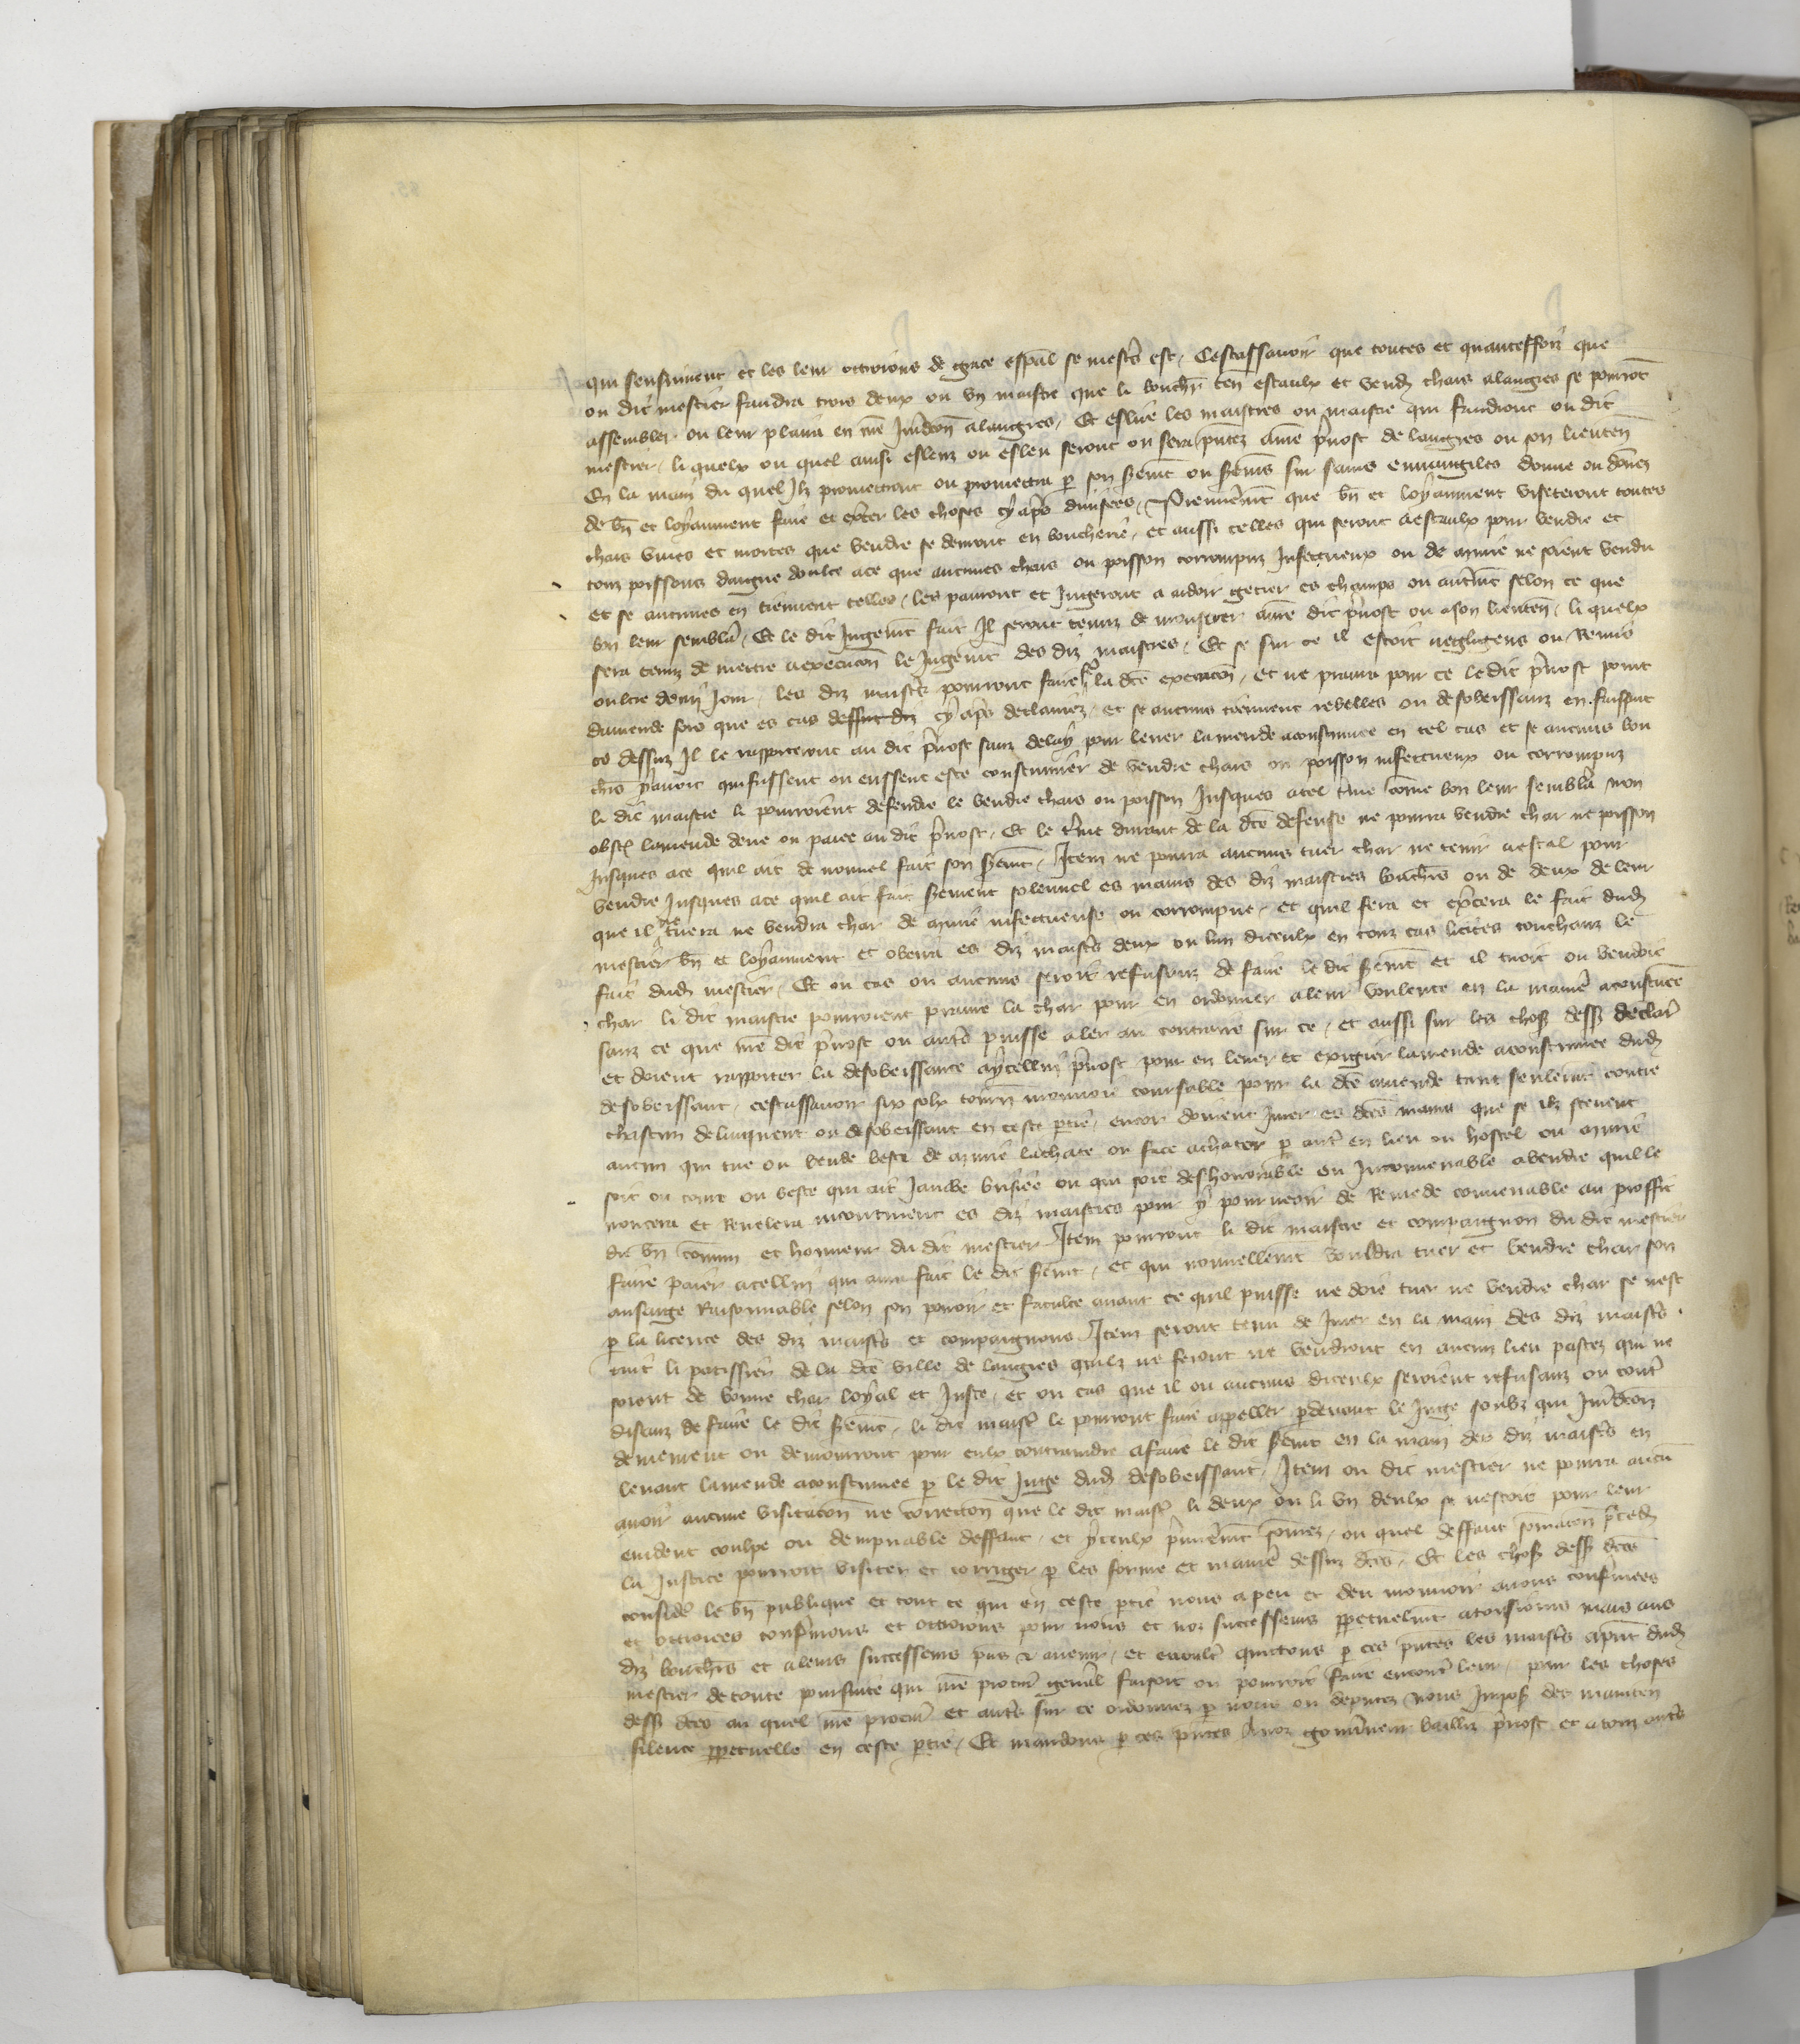 qui sensuiuent et les leur ottroions de grace espāl se mestˢ est, Cestassauoir que toutes et quanteffoiz que
ou dit mestier faudra trois deux ou vn maistre que li bouchˢ ten estaulx et vend chars alangres se pourrōt
assembler ou leur plaira en nr̄e Jur̄dcōn alangres, Et eslire les maistres ou maistre qui faudront ou dit
mestier, li quelx ou quel ainsi esleuz ou esleu seront ou sera pn̄tez a nr̄e pr̄uost de langres ou son lieuten̄
En la main du quel Ilz promettront ou promettra p son serm̄t ou serm̄s sur sains euuangiles donne ou dōnez
de bn̄ et loyaument faire et exc̄er les choses cy apˢ diuisees, Premierem̄t que bn̄ et loyaument viseteront toutes
chars viues et mortes que vendre se deuront en boucherie, et aussi celles qui seront aestaulx pour vendre et
touz poissons daigue doulce ace que aucunes chars ou poisson corrompuz Infectueux ou de murie ne soient vendu
et se aucunes en tiennent celles, les panront et Jugeront a ardoir getier es champs ou autrem̄t selon ce que
bon leur semblā, Et le dit Jugem̄t fait Il seront tenuz de monstrer anr̄e dit pr̄uost ou ason lieuten̄, li quelx
sera tenuz de mettre aexecucōn le Jugem̄t des diz maistres, Et se sur ce il estoit negligens ou Remis
oultre demi Jour, les diz maistˢ pourront faire la dc̄e execucōn, et ne panra pour ce ledit pr̄uost point
damende fors que es cas dessus diz cy apˢ declairiez, et se aucuns tiennent rebelles ou desobeissanz en faisant
ce dessuz Il le rapporteront au dit pr̄uost sanz delay pour leuer lamende acoustumee en tel cas et se aucuns bou
chˢ yauoit qui fussent ou eussent este coustumier de vendre chars ou poisson infectueux ou corrompuz
li dit maistre li pourroient defendre le vendre chars ou poisson Jusques atel tr̄me cōme bon leur semblā non
obst lamende deue ou paiee au dit pr̄uost, Et le tr̄me durant de la dc̄e defense ne pourra vendre char ne poisson
Jusques ace quil ait de nouuel fait son serm̄t, Item ne pourra aucuns tuer char ne tenir aestal pour
vendre Jusques ace quil ait fait serment solennel es mains des diz maistres bouchˢ ou de deux de leur
que il ne tuera ne vendra char de murie infectueuse ou corrompue, et quil fera et exc̄era le fait dud
mestier bn̄ et loyaument et obeira es diz maistˢ deux ou lun diceulx en touz cas licites touchanz le
fait dud mestier, Et ou cas ou aucuns seroit refusanz de faire le dit serm̄t et il tuoit ou vendoit
char li dit maistre pourroient panre la char pour en ordonner aleur voulente en la maniē acoustumee
sanz ce que nr̄e dit pr̄uost ou autˢ puisse aler au contraire sur ce, et aussi sur les chosˢ dessˢ declair̄
et doient rapporter la desobeissance aycellui pr̄uost pour en leuer et exigier lamende acoustumee dud
desobeissant, cestassauoir six solz tourn̄ monnoie coursable pour la dc̄e amende tant seulem̄t contre
chascun delinquent ou desobeissant en ceste ptie, encor doiuent Jurer es dc̄es mains que se ilz sceuent
aucun qui tue ou vende beste de murie lachate ou face achater p autˢ en lieu ou hostel ou murie
soit ou toute ou beste qui ait Jambe brisiee ou qui soit deshonnorable ou Inconuenable avendre quil le
noncera et Reuelera incontinent es diz maistres pour y pourueoir de Remede conuenable au proffit
du bn̄ cōmun et honneur du dit mestier Item pourront li dit maistre et compaignon du dit mestier
faire paier acellui qui aura fait le dit serm̄t, et qui nouuellem̄t vouldra tuer et vendre char son
ansange Raisonnable selon son pouoir et faculte auant ce quil puisse ne doie tuer ne vendre char se nest
p la licence des diz maistˢ et compaignons Item seront tenu de Jurer en la main des diz maistˢ
tuit li patissier de la dc̄e ville de langres quilz ne feront ne vendront en aucun lieu pastez qui ne
soient de bonne char loyal et Juste, et ou cas que il ou aucuns diceulx seroient refusanz ou contˢ
disanz de faire le dit serm̄t, li dit maistˢ le pourront faire appeller pdeuant le Juge soubz qui Jur̄dcōn
demeurent ou demourront pour eulx contraindre afaire le dit serm̄t en la main des diz maistˢ en
leuant lamende acoustumee p le dit Juge dud desobeissant, Item ou dit mestier ne pourra aucū
auoir aucune visitacōn ne correccōn que le dit maistˢ li deux ou li vn deulx se nestoit pour leur
euident coulpe ou dempnable deffaut, et ycculx premierem̄t sōmez, ou quel deffaut sōmacōn pr̄ced
la Justice pourroit visiter et corriger p les forme et maniē dessuz dc̄es, Et les chosˢ dessˢ dc̄es
considˢ le bn̄ publique et tout ce qui en ceste ptie nous a peu et deu mouuoir auons confirmees
et ottroiees confirmons et ottroions pour nous et noz successeurs ppetuelm̄t atousiours mais aus
diz bouchˢ et aleurs successeurs pn̄s et auenir, et en oultˢ quittons p ces pn̄tes les maistˢ apn̄t dud
mestier de toute poursuite que nr̄e procur̄ genāl faisoit ou pourroit faire encontˢ leur, pour les choses
dessˢ dc̄es au quel nr̄e procur̄ et autˢ sur ce ordonnez p nous ou deputez nous Imposˢ des mainten̄
silence ppetuelle en ceste ptie, Et mandons p ces pn̄tes Anoz gouuerneur bailliz pr̄uost et atouz autˢ